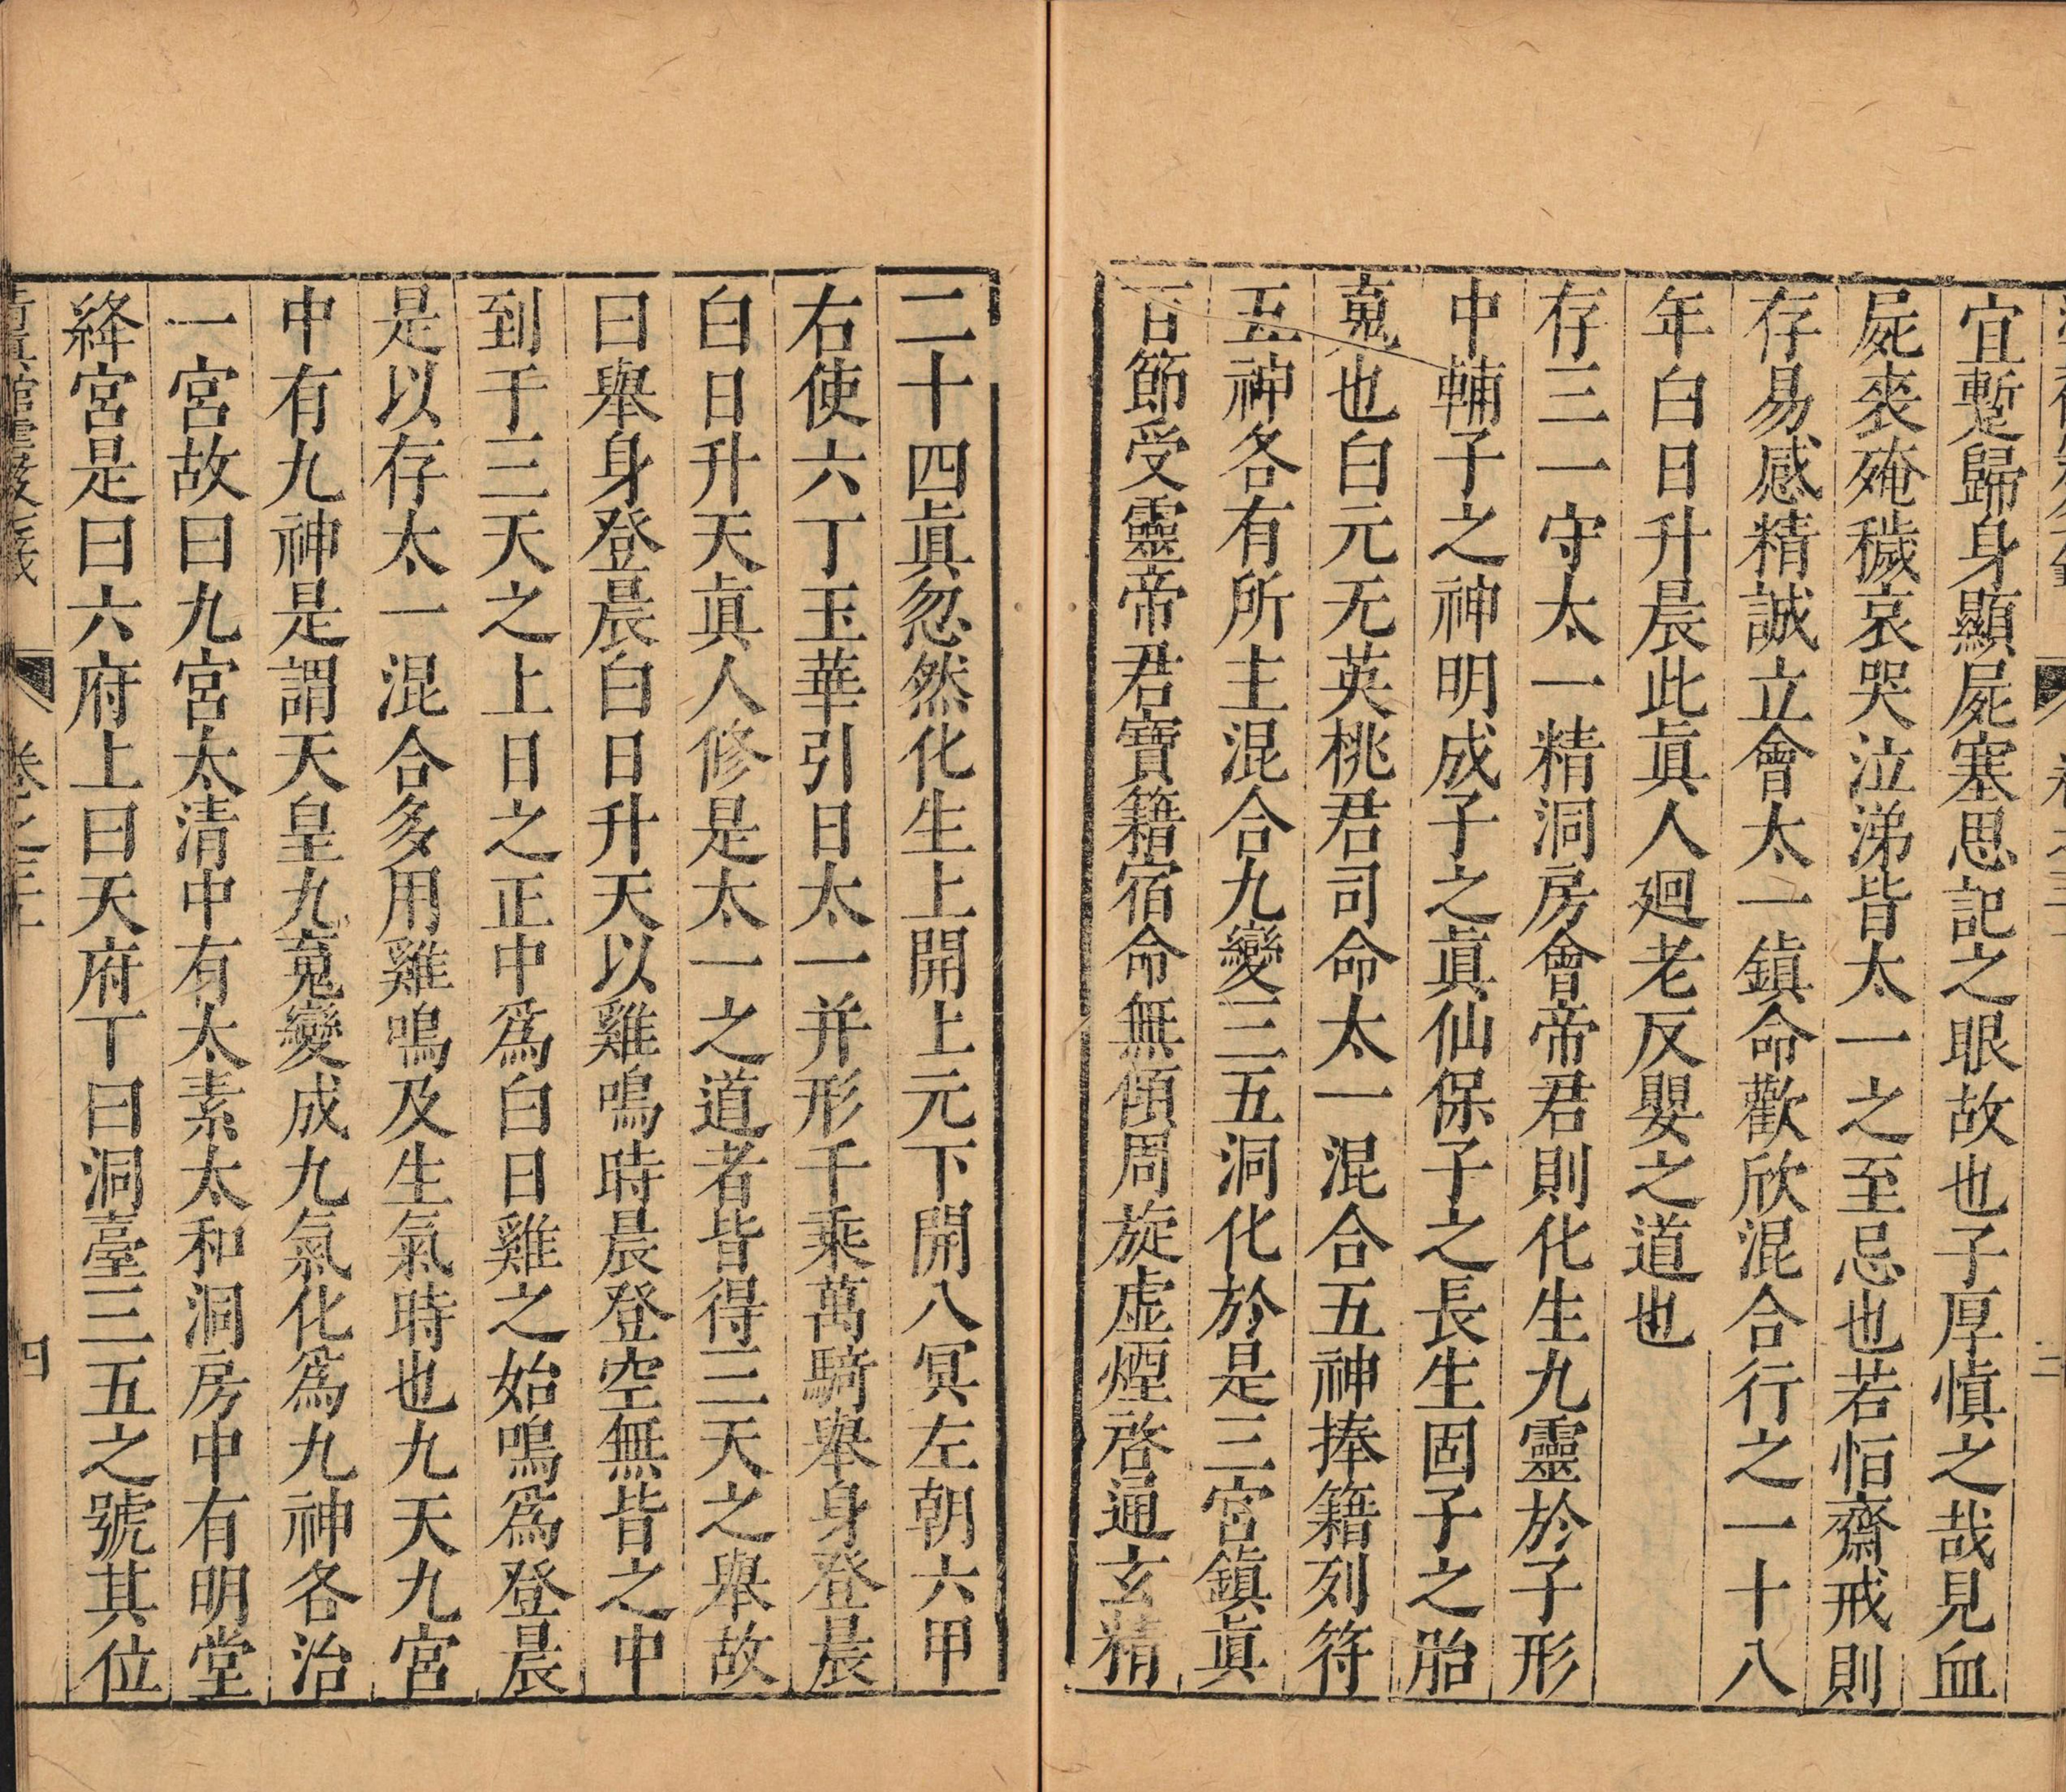 宜蹔歸身顯屍塞思記之眼故也子厚愼之哉見血
屍䘮殗穢哀哭泣涕皆太一之至忌也若恒齋戒則
存易感精誠立會太一鎮命歡欣混合行之一十八
年白日升晨此眞人廻老反嬰之道也
存三一守太一精洞房會帝君則化生九靈於子形
中輔子之神明成子之眞仙保子之長生固子之胎
䰟也白元无英桃君司命太一混合五神捧籍列符
五神各有所主混合九變三五洞化於是三宮鎮眞
百節受靈帝君寶籍宿命無傾周旋虛煙啓通玄精
二十四眞忽然化生上開上元下開八冥左朝六甲
右使六丁玉華引日太一并形千乘萬騎舉身登晨
白日升天眞人修是太一之道者皆得三天之舉故
曰舉身登晨白日升天以雞鳴時晨登空無皆之中
到于三天之上日之正中爲白日雞之始鳴爲登晨
是以存太一混合多用雞鳴及生氣時也九天九宮
中有九神是謂天皇九䰟變成九氣化爲九神各治
一宮故曰九宮太清中有太素太和洞房中有明堂
絳宮是曰六府上曰天府下曰洞臺三五之號其位
卷之三十
四